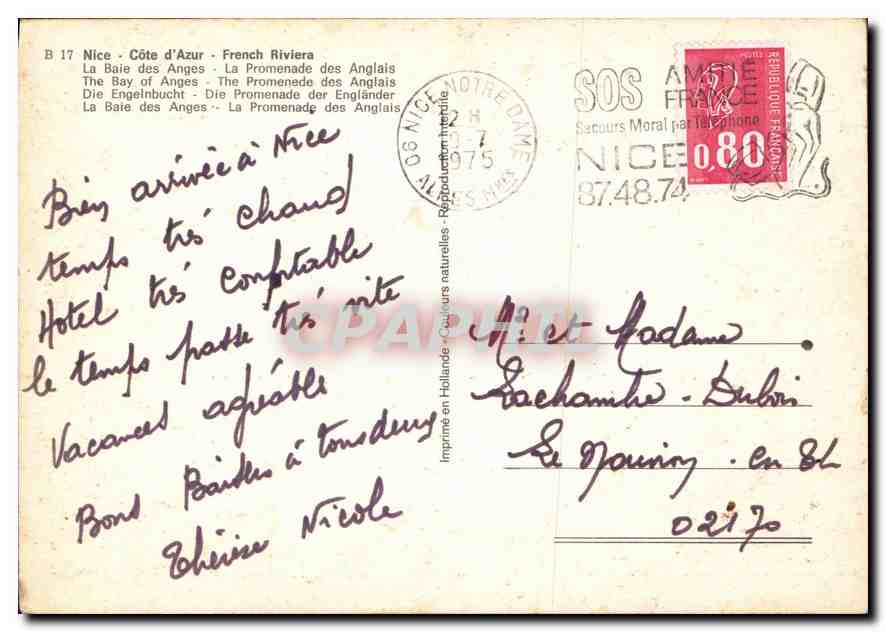 B 17 Nice - Côte d'Azur - French Riviera
La Baie des Anges - La Promenade des Anglais
The Bay of Anges - The Promenede des Anglais
Die Engelnbucht - Die Promenade der Engländer
La Baie des Anges - La Promenade des Anglais
Bien arrivée à Nice
temps très chaud
Hotel très confortable
le temps passe très vite
Vacances agréable
Bons Baisers à tous deux
Thérèse Nicole
Imprimé en Hollande - Couleurs naturelles - Reproduction interdite
06 NICE NOTRE DAME
12 H
7
1975
ALPES MMES
SOS AMITIE
FRANCE
Secours Moral par Téléphone
NICE
87.48.74
POSTES
REPUBLIQUE FRANÇAISE
0,80
CPAPHIL
Mr et Madame
Lachambre - Dubois
Le Nouvion - en Th
02170